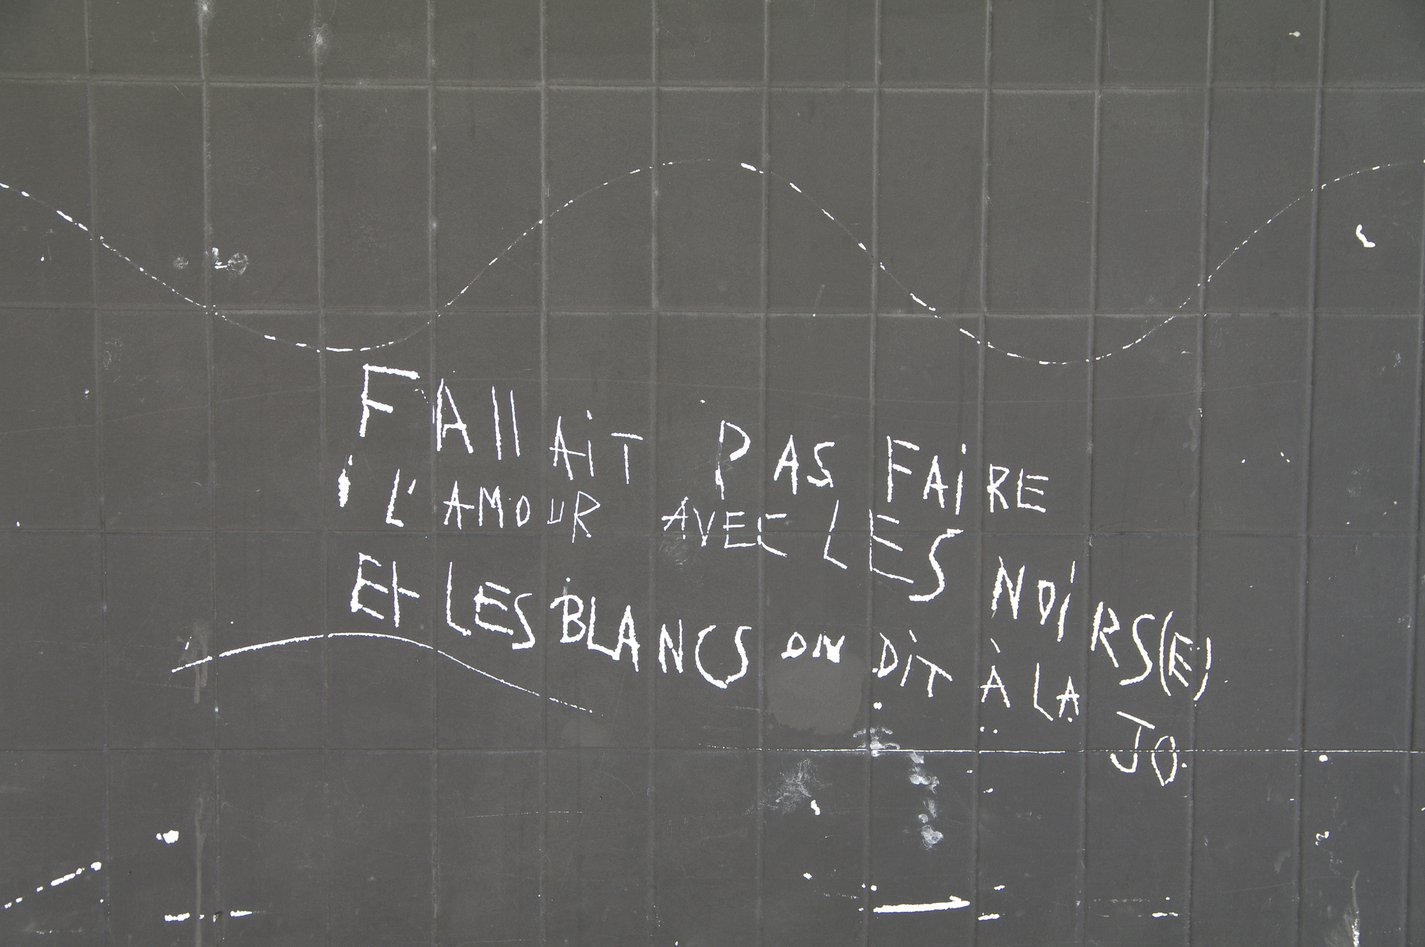 FAllAiT PAS FAiRE
L'AMOUR AVEC LES NOiRS(E)
Et LES BLANCS ON DiT À LA
JO